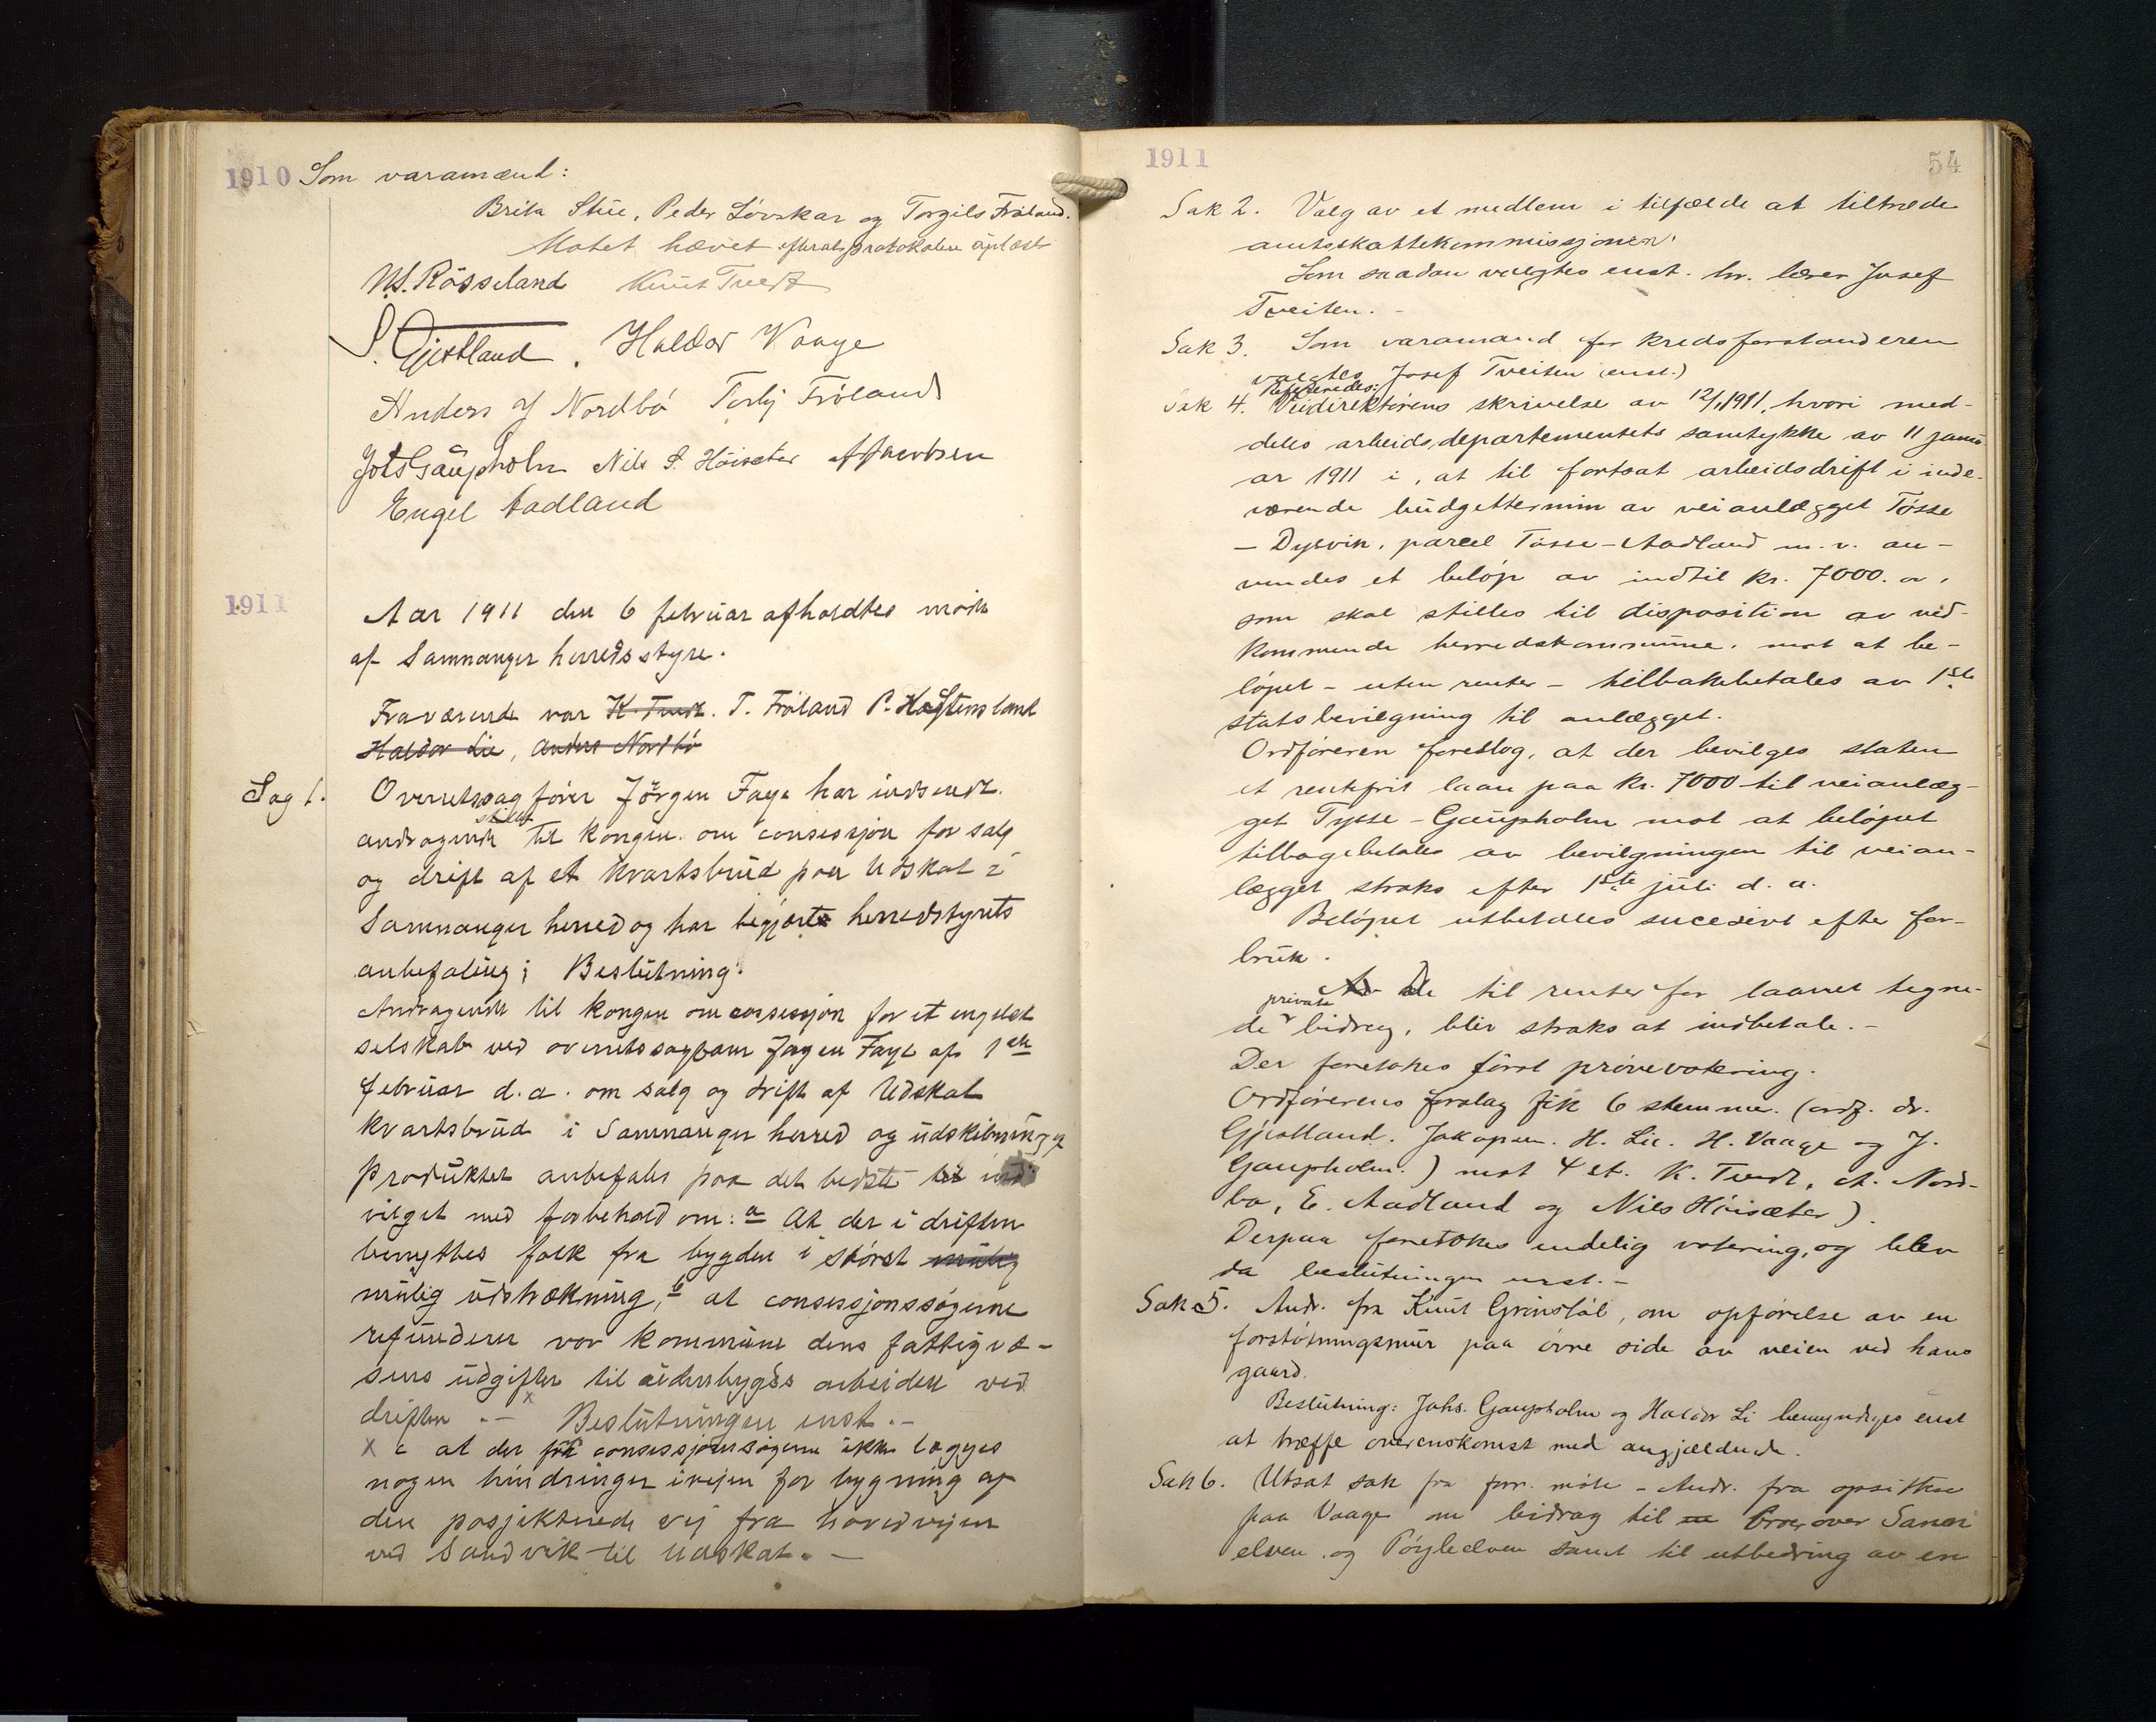 1910 Som varamænd:
Brita Stue, Peder Lövskar og Torgils Fröland.
Møtet hævet efterat protokolen oplæst
N.S. Rösseland Knut Tvedt
S. Gjestland. Haldor Vaage
Anders J Nordbö Torbj Fröland
Johs Gaupholm Nils S. Höisæter A Jacobsen
Engel Aadland
1911
Aar 1911 den 6 februar afholdtes møte
af Samnanger herredsstyre.
Fraværende var K. Tvedt. T. Fröland P. Hagstensland
Haldor Lie, Anders Nordbö
Sag 1. Overretssagfører Jörgen Faye har indsendt
stilet
andragende til kongen om consessjon for salg
og drift af et kvartsbrud paa Udskot i
Samnanger herred og har begjært herredstyrets
anbefaling; Beslutning:
Andragende til kongen om cossessjon for et engelsk
selskab ved overretssagfører Jørgen Faye af 1ste
februar d.a. om salg og drift af Udskot
kvartsbrud i Samnanger herred og udskibning af
produktet anbefales paa det bedste til ind
vilget med forbehold om: a At der i driften
benyttes folk fra bygden i størst mulig
mulig udstrækning, b at consessjonssøgerne
refunderer vor kommune dens fattigvæ-
sens udgifter til udenbygds arbeidere ved
driften .- x Beslutningen enst.-
x c at der fra consessjonssøgerne ikke lægges
nogen hindringer iveien for bygning af
den prosjekterede vej fra hovedvejen
ved Sandvik til Udskot. -
1911
54
Sak 2. Valg av et medlem i tilfælde at tiltræde
amtsskattekommissjonen.
Som saadan valgtes enst. hr. lærer Josef
Tveiten. -
Sak 3. Som varamand for kredsforstanderen
valgtes Josef Tveiten (enst.)
Refereredes:
Sak 4. Veidirektørens skrivelse av 12/1 1911, hvori med-
deles arbeidsdepartementets samtykke av 11 janu
ar 1911 i, at til fortsat arbeidsdrift i inde-
værende budgettermin av veianlægget Tösse
- Dysvik, parcel Tösse-Aadland m.v. an-
vendes et beløp av indtil kr. 7000. a.
som skal stilles til disposition av ved-
kommende herredskommune, mot at be-
løpet - uten renter - tilbakebetales av 1ste
statsbevilgning til anlægget.
Ordføreren foreslog, at der bevilges staten
et rentefrit laan paa kr. 7000 til veianlæg-
get Tysse-Gaupholm mot at beløpet
tilbagebetales av bevilgningen til veian-
lægget straks efter 1ste juli d.a.
Beløpet utbetales sucesivt efter for-
bruk.
De til renter for laanet tegne-
private
de bidrag, blir straks at indbetale.-
Der foretokes først prøvevotering.
Ordførerens forslag fik 6 stemmer. (ordf. dr.
Gjestland. Jakopsen. H. Lie. H. Vaage og J.
Gaupholm.) mot 4 st. K. Tvedt, A. Nord-
bø, E. Aadland og Nils Höisæter).
Derpaa foretokes endelig votering, og blev
da beslutningen enst.-
Sak 5. Andr. fra Knut Grönsdal, om opførelse av en
forstøtningsmur paa øvre side av veien ved hans
gaard.
Beslutning: Johs. Gaupholm og Haldor Li bemyndiges enst
at træffe overenskomst med angjældende.
Sak 6. Utsat sak fra forr. møte - Andr. fra opsittere
paa Vaage om bidrag til broer over
elven og samt til utbedring av en